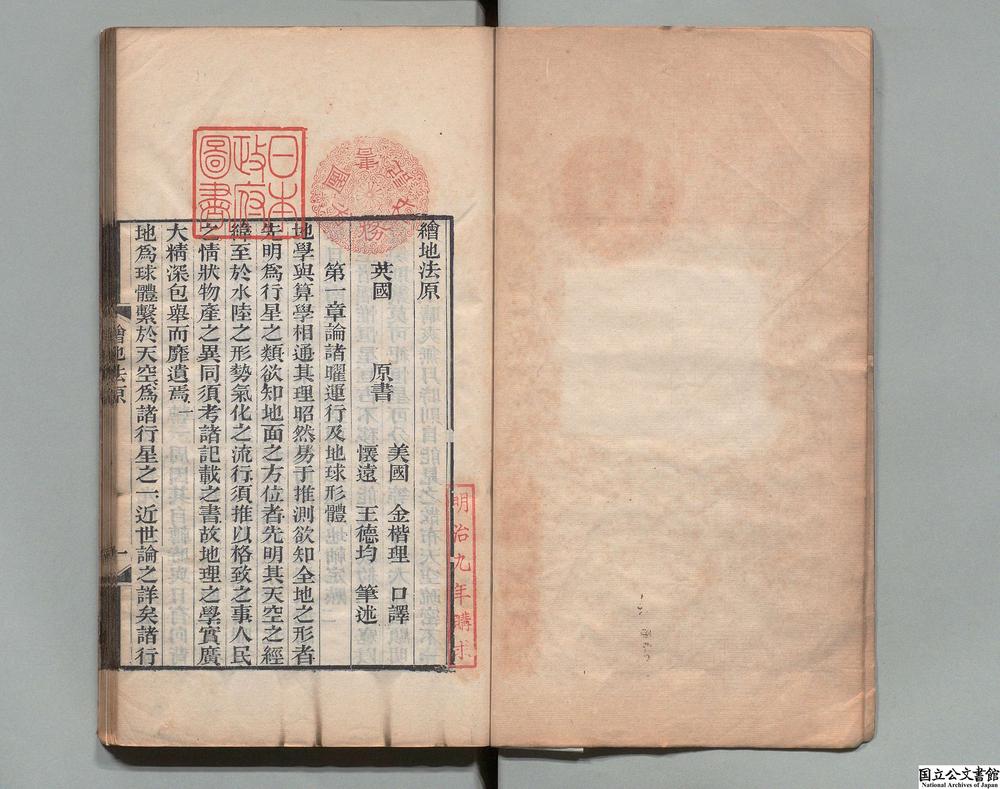 繪地法原
英國　原書
美國　金楷理　口譯
懷遠　王德均　筆述
第一章論諸曜運行及地球形體
地學與算學相通其理昭然易于推測欲知全地之形者
先明爲行星之類欲知地面之方位者先明其天空之經
緯至於水陸之形勢氣化之流行須推以格致之事人民
之情狀物產之異同須考諸記載之書故地理之學實廣
大精深包舉而靡遺焉
地爲球體繫於天空爲諸行星之一近世論之詳矣諸行
繪地法原
一
日本
政府
圖書
明治九年購求
国立公文書館
National Archives of Japan